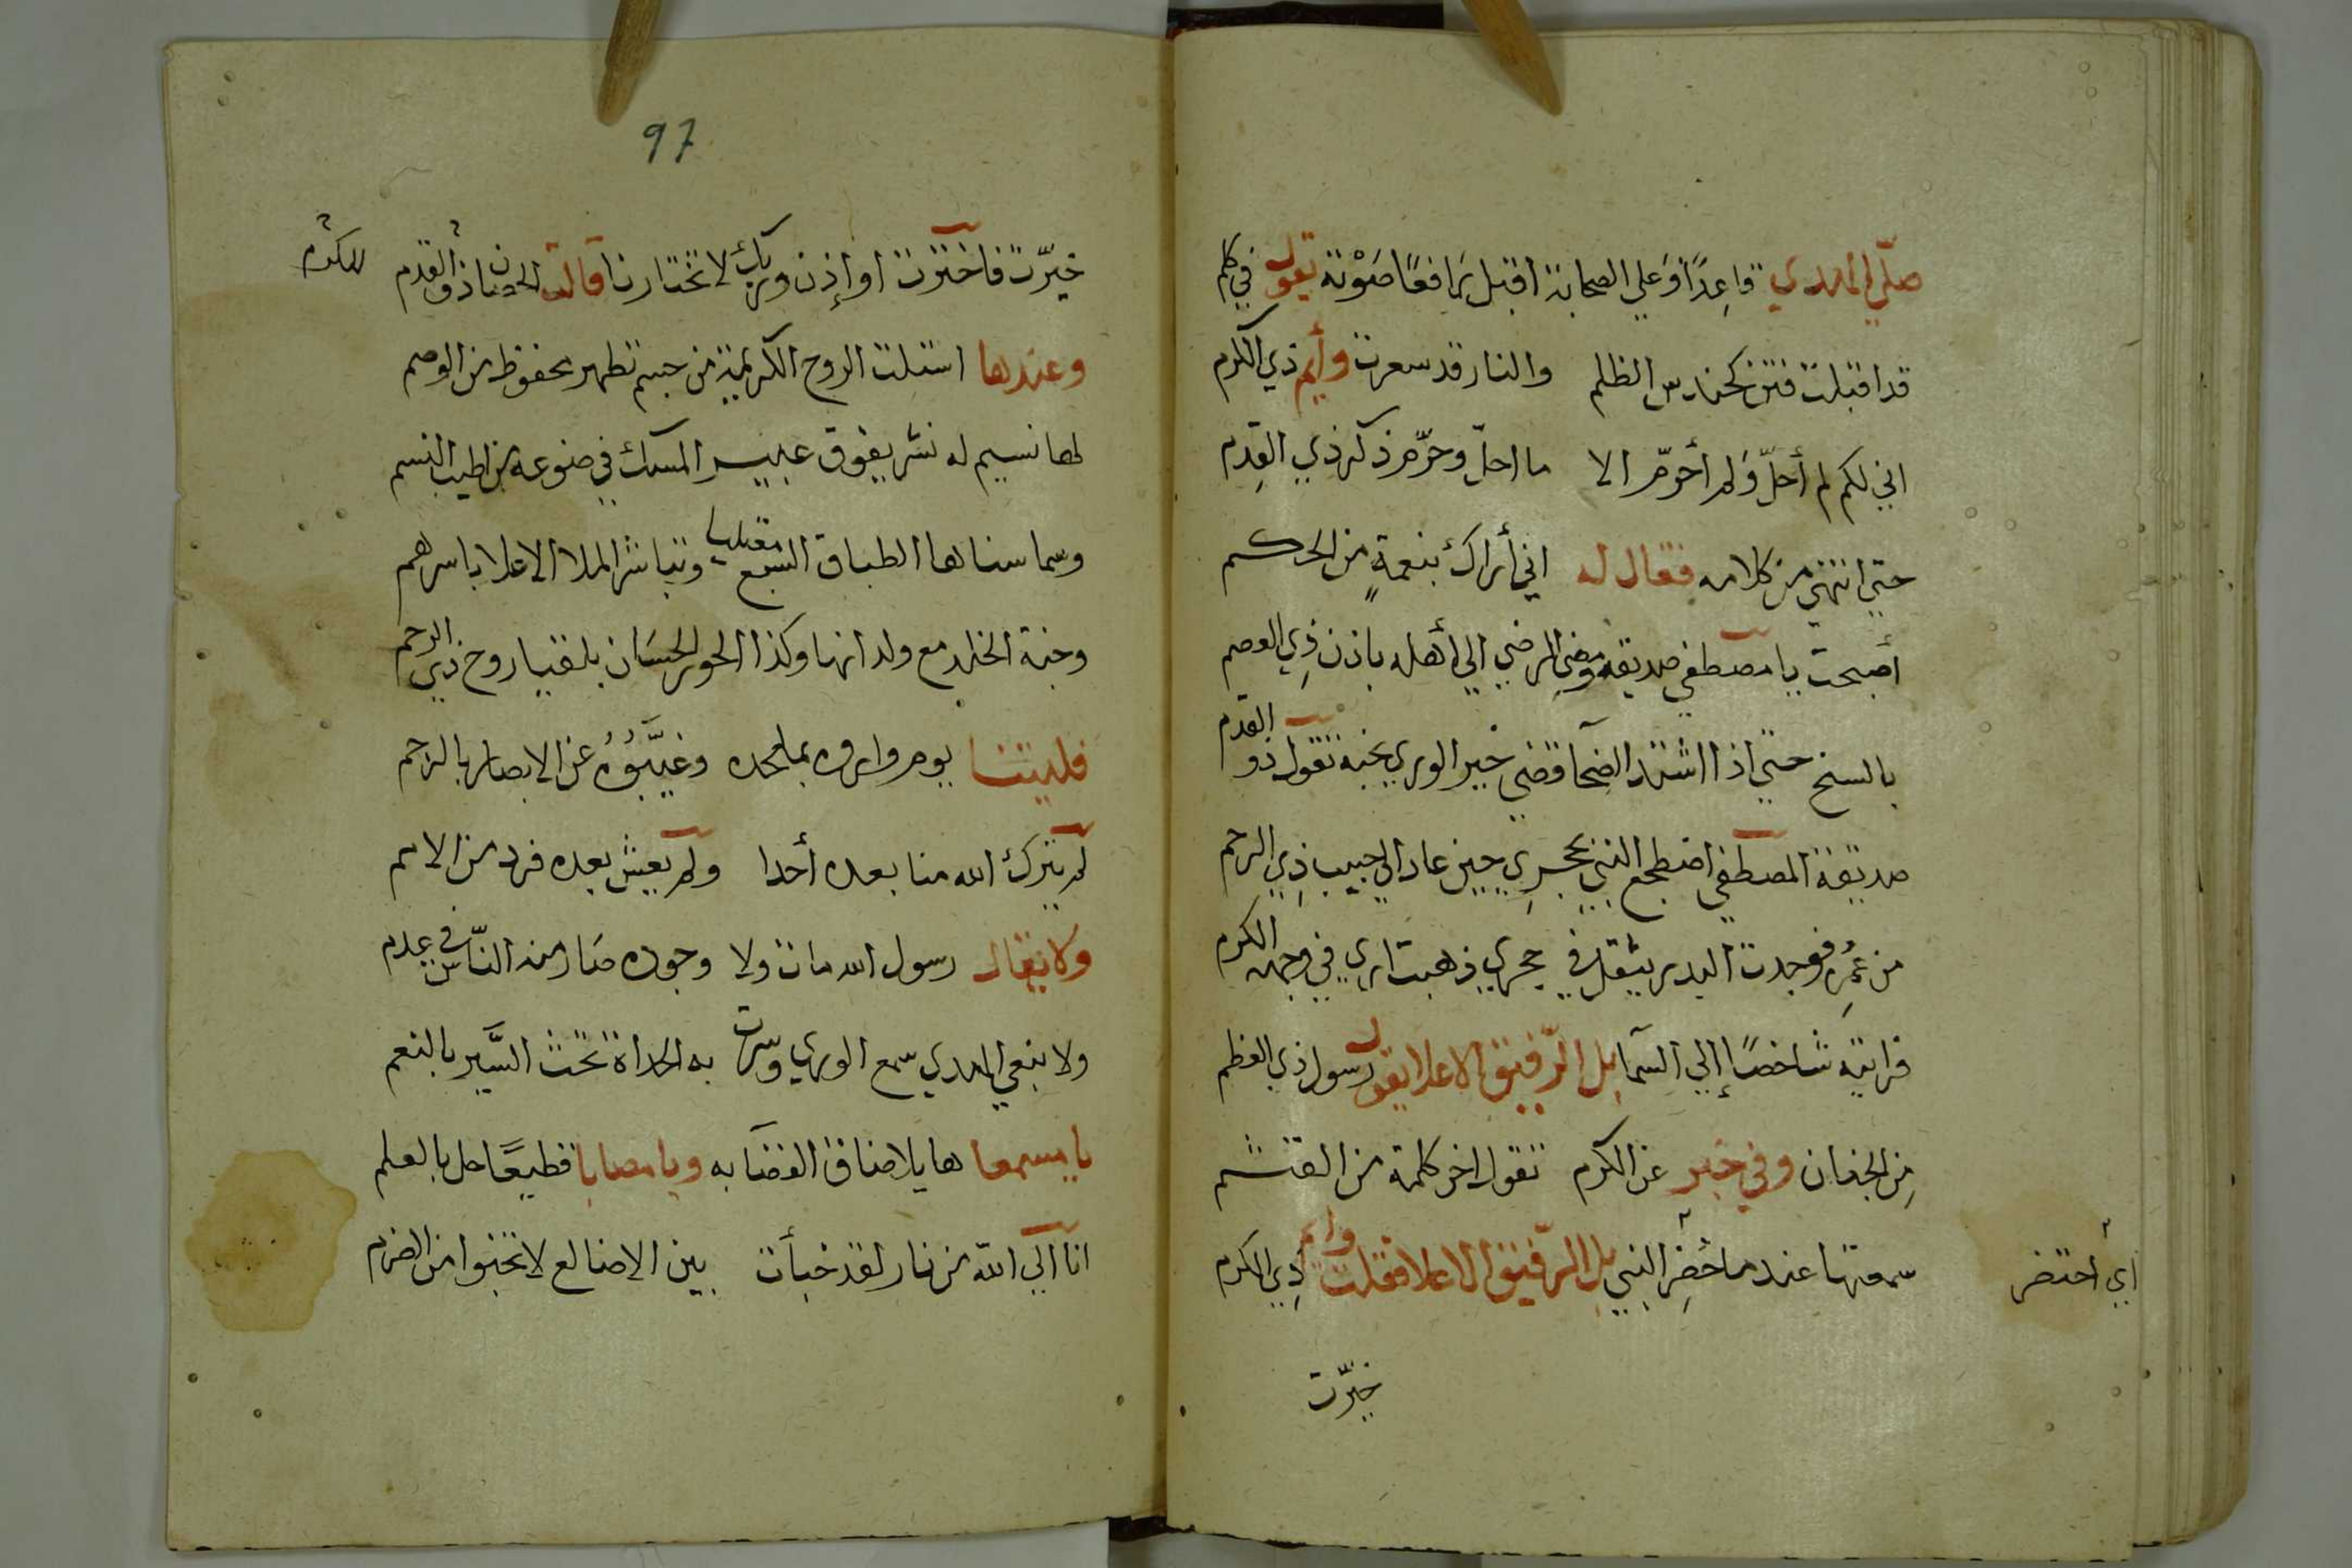 صلّى الهدي قاعِدًا وَعلى الصحابة اقبل رافعًا صَوْته تقول في كلم
قد اقبلت فتن كحندس الظلم والنار قد سعرت وأيم ذي الكرم
اني لكم لم أحلّ وَلم أحرّم الا ما احلّ وحرّم ذكر ذي القِدم
حتي انتهي من كلامه فقال له اني أراك بنعمةٍ من الحكم
أصبحت يا مصطفي صديقه ومضي الرضي الي أهله باذن ذِي العصم
بالسنح حتي اذا اشتد الضحا قضي خير الوري نحبه تقول ذو القدم
صديقة المصطفي اضطجع النبي بحجرِي حين عاد الي حبيب ذِي الرحم
من عُمرِه فوجدت اليد يثقل في حجري ذهبت اري في وجهه الكرم
فرايته شاخصًا إلي السّما بل الرّفيق الاعلا يقول رسول ذي العظم
مِن الجنان وفي خبر عن الكرم تقول اخر كلمة من القثم
سمعتها عند ما حُضِر النبي بل الرّفيق الاعلا فقلت وايم ذِي الكرم
أي احتضر
خيّرت
97
خيّرت فاخترت او إذن وربك لا تختارنا قالت الحصان ذو القدم
للكرم
وعندها استلت الروح الكريمة من جسم تطهر محفوظ من الوصم
لها نسيم له نشر يفوق عبير المسك في ضوعه من اطيب النسم
وسما سناها الطباق السبع وتباشر الملا الاعلا باسرهم
وجنة الخلد مع ولدانها وكذا الحور الحسَان بلقيا روح ذي الرحم
فليتنا يوم واروه بملحده وغيَّبوُه عن الابصار بالرجم
لم يترك الله منا بعده أحدا ولم يعش بعده فرد من الامم
ولا يقال رسول الله مات ولا وجوده صَار منه النّاس في عدم
ولا بنعي الهدي سمع الوري وسرت به الحداة تحث السَّير بالنعم
يا مسمعا هايلا ضاق الفضَا به ويا مصابا فظيعًا حل بالعلم
انّا الي الله من نار لقد خبأت بين الاضالع لا تخبوا من الضرم